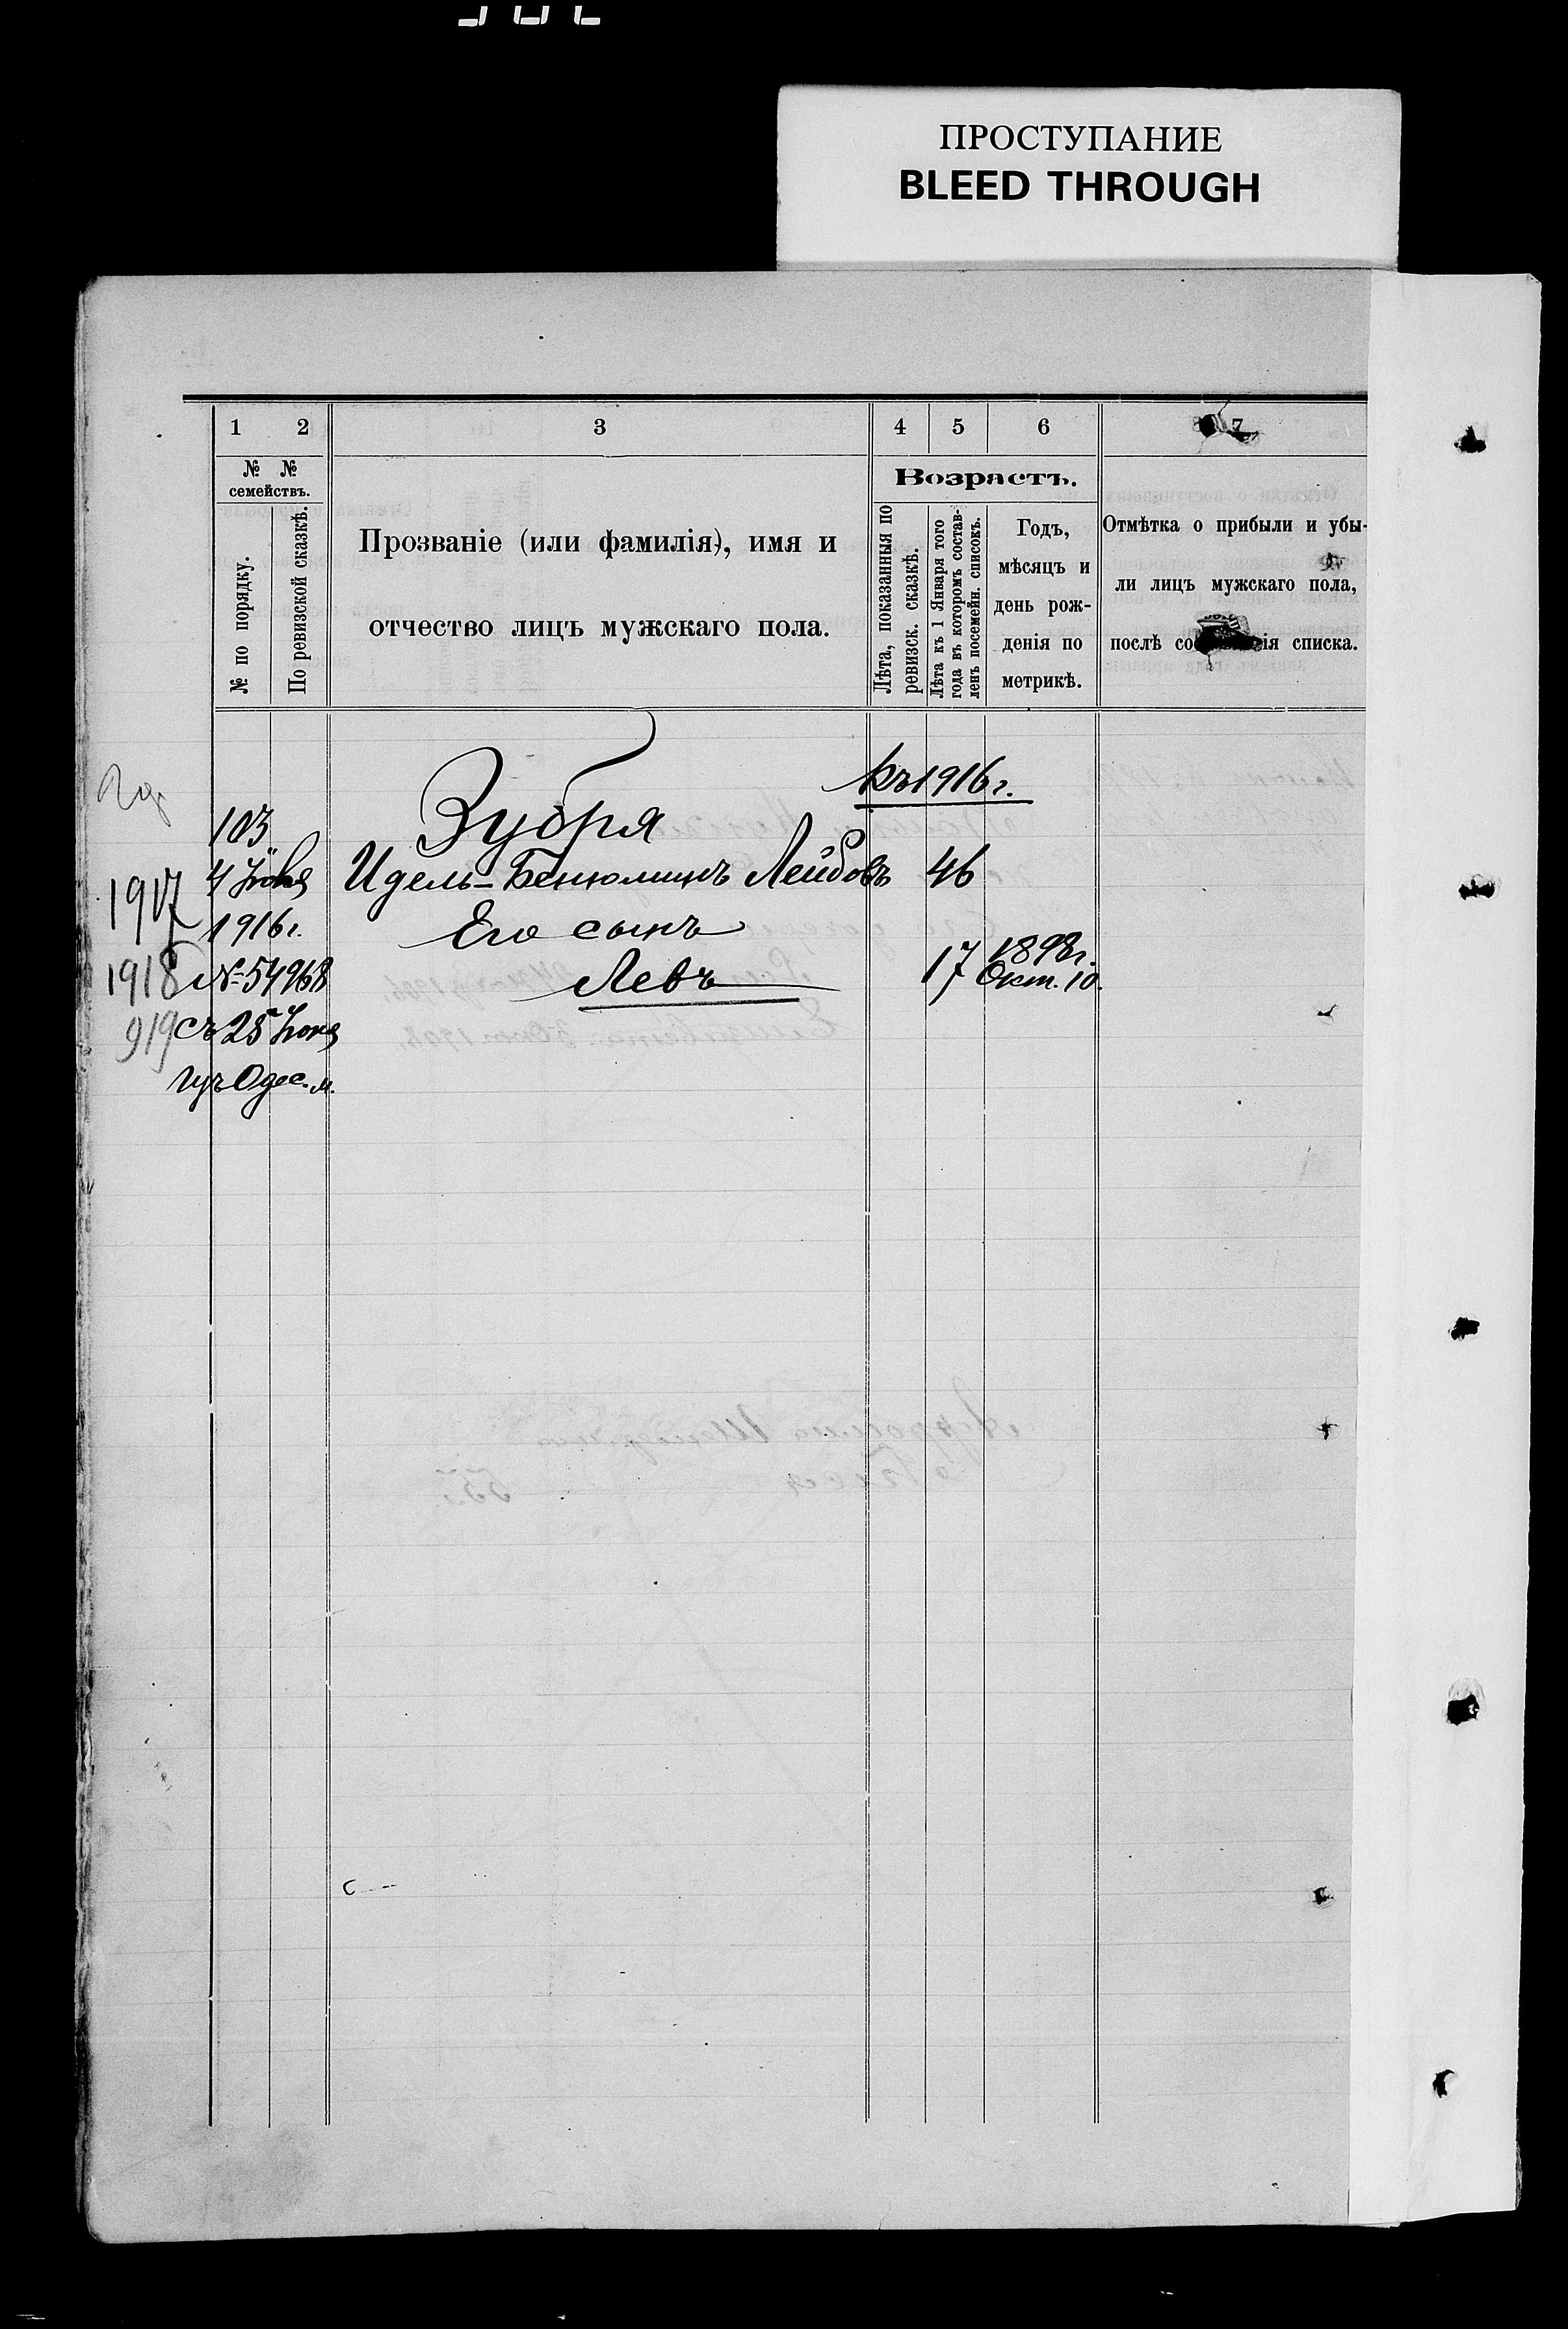 ПРОСТУПАНИЕ
BLEED THROUGH
1 2 3 4 5 6 7
№ № семействъ.
№ по порядку.
По ревизской сказкѣ.
Прозваніе (или фамилія), имя и
отчество лицъ мужскаго пола.
Возрастъ.
Лѣта, показанныя по
ревизск. сказкѣ.
Лѣта къ 1 Января того
года въ которомъ состав-
ленъ посемейн. списокъ.
Годъ,
мѣсяцъ и
день рож-
денія по
метрикѣ.
Отмѣтка о прибыли и убы-
ли лицъ мужскаго пола,
послѣ со ія списка.
къ 1916 г.
103
Зубря
4 Іюня Идель-Бенюминъ Лейбовъ 46
1917
1916 г. Его сынъ
1918 № 54968 Левъ 17 1898 г.
Окт. 10.
919 съ 25 Іюня
Одес. м.